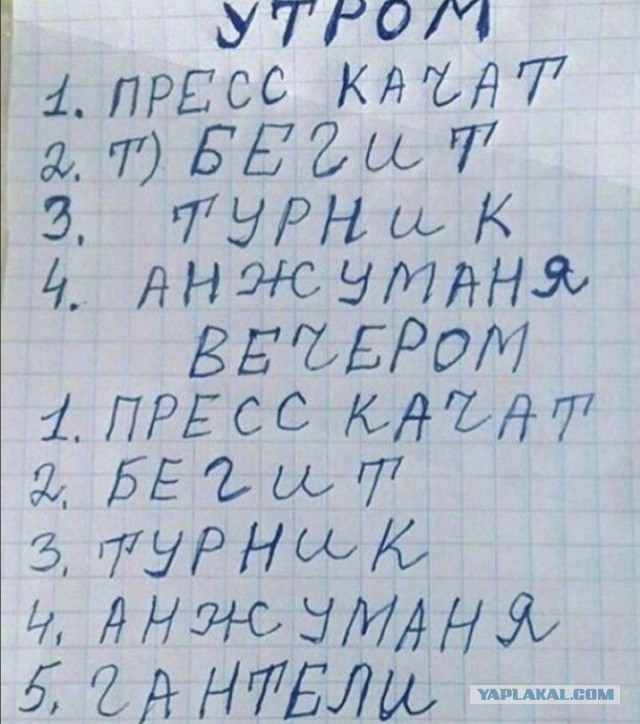 УТРОМ
1. ПРЕСС КАЧАТ
2. Т) БЕГИТ
3. ТУРНИК
4. АНЖУМАНЯ
ВЕЧЕРОМ
1. ПРЕСС КАЧАТ
2. БЕГИТ
3. ТУРНИК
4. АНЖУМАНЯ
5. ГАНТЕЛИ
YAPLAKAL.COM